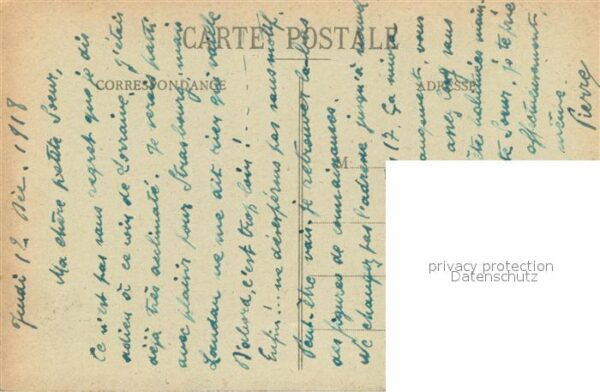 CARTE POSTALE
CORRESPONDANCE
ADRESSE
M
Jeudi 12 Déc. 1918
Ma chère petite Sœur,
Ce n'est pas sans regret que je dis
adieu à ce coin de Lorraine, j'étais
déjà très acclimaté. Je verrais parti
avec plaisir pour Strasbourg, mais
Landau ne me dit rien qui vaille
D'abord, c'est trop loin!
Enfin!... ne désespérons pas sans motif.
Peut-être vais-je retrouver là-bas
des figures de connaissances.
Ne changez pas l'adresse jusqu'à
17. Ça
vous
assez long sans
habituées
Sœur, je te prie
affectueusement.
Pierre
privacy protection
Datenschutz